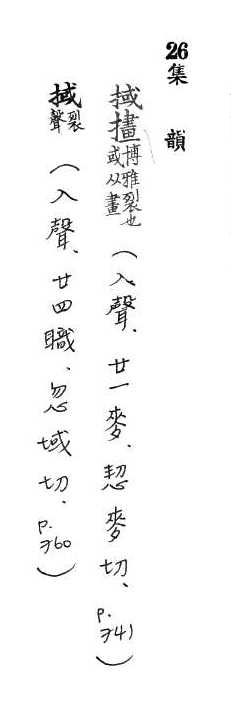 26 集韻
掝㩇 博雅裂也或从畫 (入聲、廿一麥、麥切、p.741)
掝 裂聲 (入聲、廿四職、忽域切、p.760)